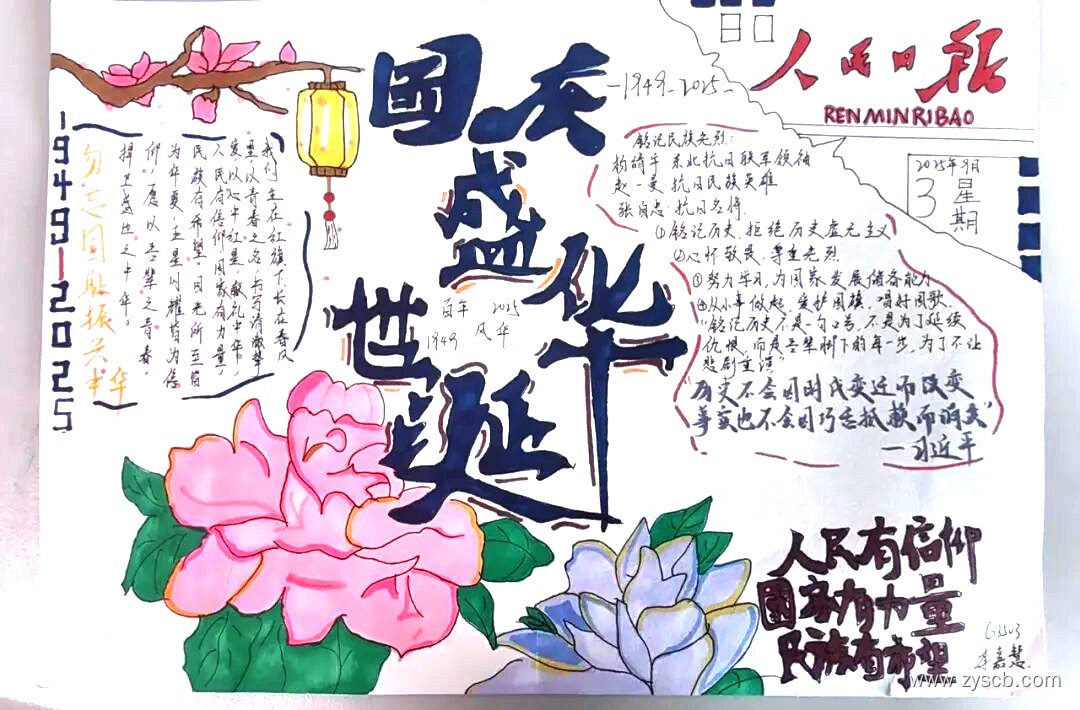 国庆
盛
世
华
延
-1949-2025-
百年 2025
1949 风华
日
人民日报
RENMINRIBAO
2025年9月
3 星期
1949-2025
勿忘国耻振兴中华
我们生在红旗下,长在春风
里,以青春之名,书写清澈挚
爱,以心中红星,献礼中华,
人民有信仰,国家有力量,
民族有希望,目光所至皆
为华夏,五星闪耀皆为信
仰,愿以吾辈之青春,
捍卫盛世之中华。
铭记民族先烈:
杨靖宇 东北抗日联军领袖
赵一曼 抗日民族英雄
张自忠 抗日名将
①铭记历史,拒绝历史虚无主义
②心怀敬畏,尊重先烈
③努力学习,为国家发展储备能力
④从小事做起,爱护国旗,唱好国歌.
"铭记历史不是一句口号,不是为了延续
仇恨,而是吾辈脚下的每一步,为了不让
悲剧重演"
"历史不会因时代变迁而改变
事实也不会因巧舌抵赖而消失"
—习近平
人民有信仰
国家有力量
民族有希望
李嘉慧
www.zyscb.com